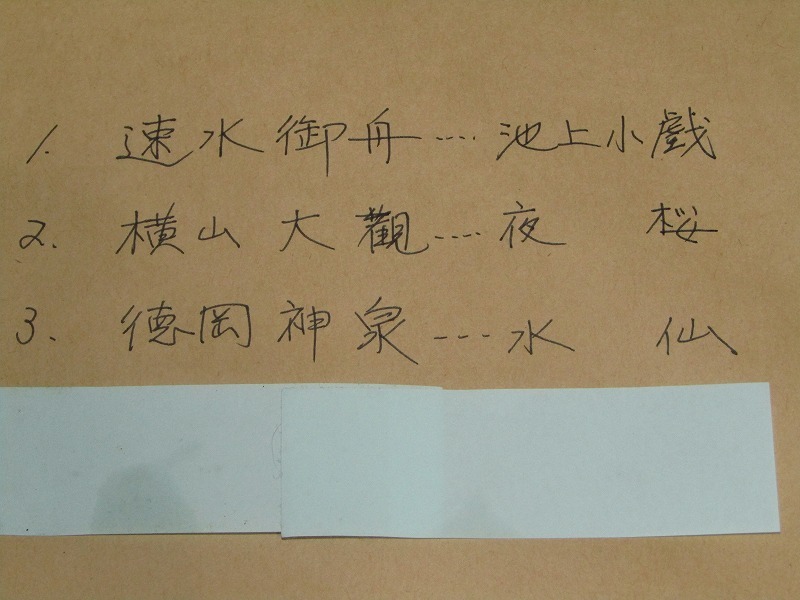 1. 速水御舟....池上小戯
2. 横山大觀....夜 桜
3. 徳岡神泉....水 仙